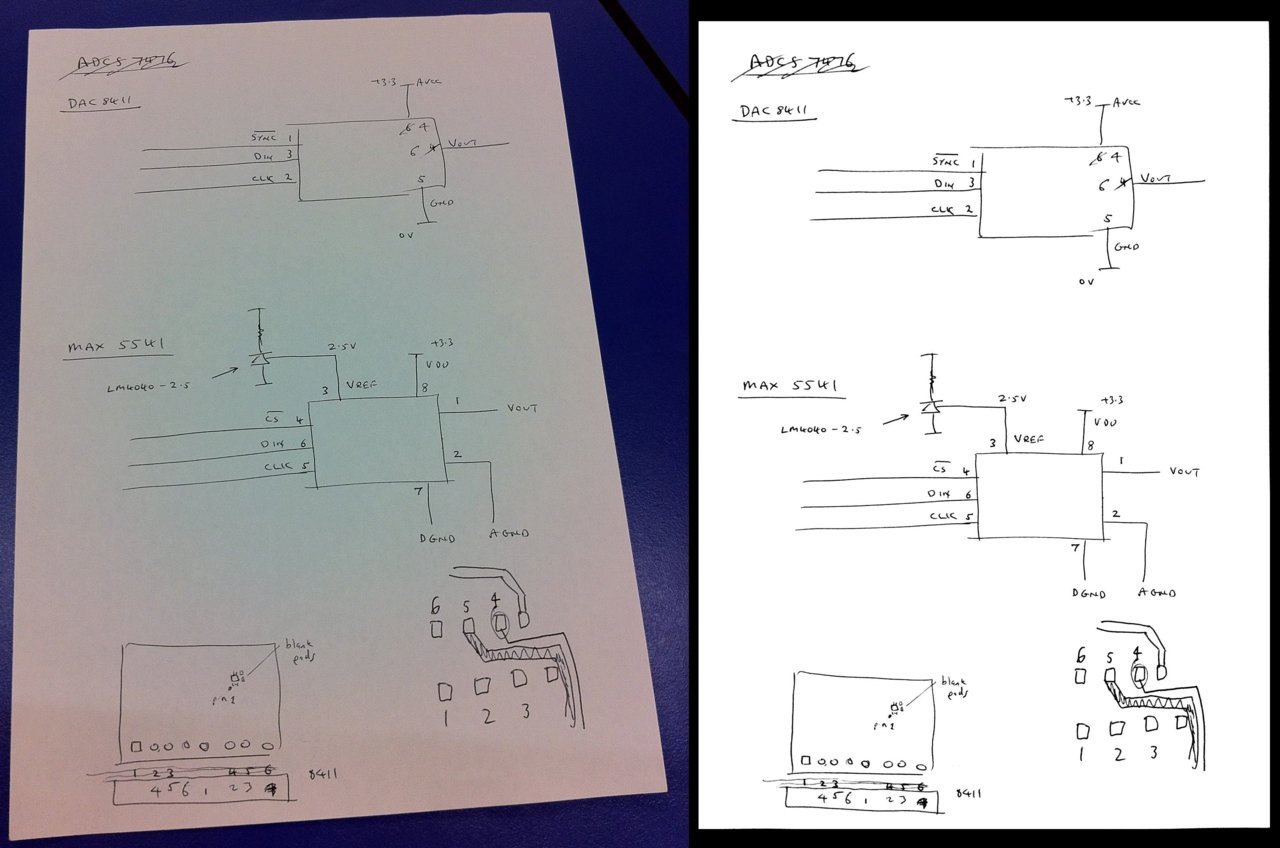 ADCS 7476
DAC 8411
+3.3 AVCC
SYNC 1
DIN 3
CLK 2
6 4
6 4
VOUT
5
GND
0V
MAX 5541
LM4040-2.5
2.5V
+3.3
VDD
3 VREF
8
CS 4
DIN 6
CLK 5
1
VOUT
2
7
DGND
AGND
6 5 4
1 2 3
blank
pads
pin 1
1 2 3 4 5 6
4 5 6 1 2 3
8411
ADCS 7476
DAC 8411
+3.3 AVCC
SYNC 1
DIN 3
CLK 2
6 4
6 4
VOUT
5
GND
0V
MAX 5541
LM4040-2.5
2.5V
+3.3
VDD
3 VREF
8
CS 4
DIN 6
CLK 5
1
VOUT
2
7
DGND
AGND
6 5 4
1 2 3
blank
pads
pin 1
1 2 3 4 5 6
4 5 6 1 2 3
8411